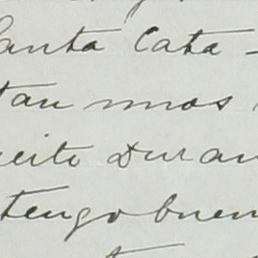 Santa Cata-
tan unos
ceite Duran
tengo buen